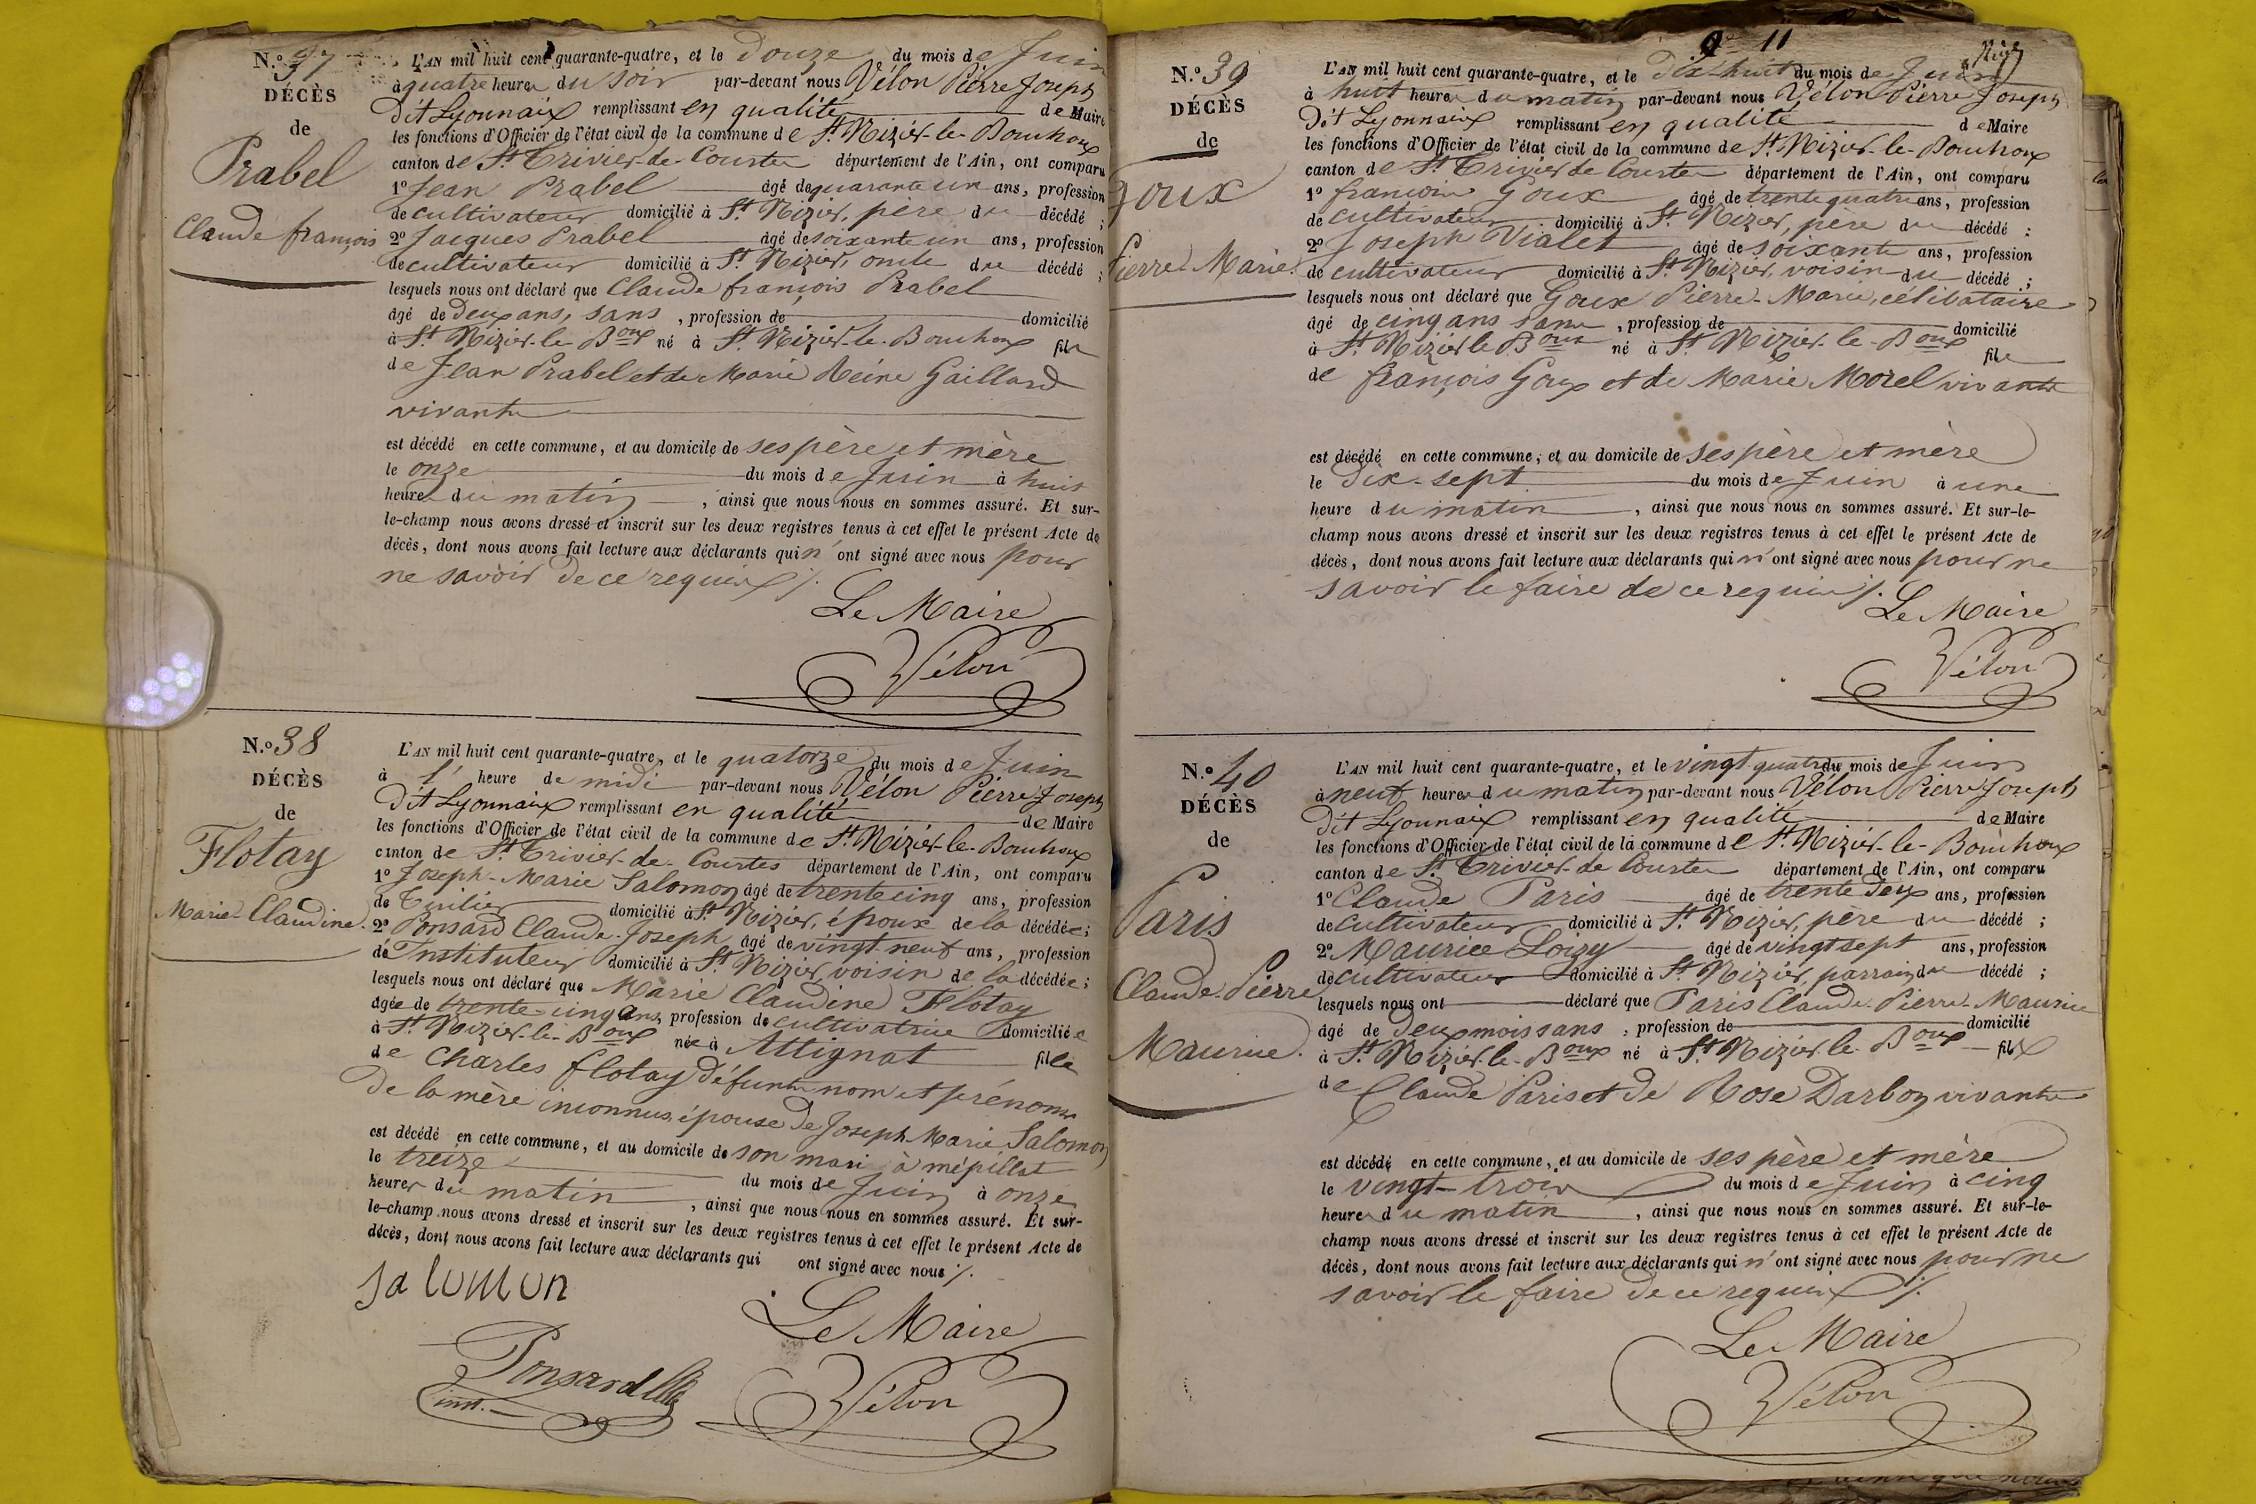 N.º 37
DÉCÈS
de
Prabel
Claude françois
L'AN mil huit cent quarante-quatre, et le Douze du mois de Juin
à quatre heures du soir par-devant nous Vélon Pierre Joseph
Dit Lyonnaix remplissant en qualité de Maire
les fonctions d'Officier de l'état civil de la commune de St. Nizier-le-Bouchoux
canton de St. Trivier-de-Courtes département de l'Ain, ont comparu
1º Jean Prabel âgé de quarante un ans, profession
de cultivateur domicilié à St. Nizier, père du décédé ;
2º Jacques Prabel âgé de soixante un ans, profession
de cultivateur domicilié à St. Nizier, oncle du décédé ;
lesquels nous ont déclaré que Claude françois Prabel
âgé de Deux ans, sans , profession de domicilié
à St. Nizier-le-Boux né à St. Nizier-le-Bouchoux fils
de Jean Prabel et de Marie Reine Gaillard
vivants
est décédé en cette commune, et au domicile de ses père et mère
le onze du mois de Juin à huit
heures du matin , ainsi que nous nous en sommes assuré. Et sur-
le-champ nous avons dressé et inscrit sur les deux registres tenus à cet effet le présent Acte de
décès, dont nous avons fait lecture aux déclarants qui n'ont signé avec nous pour
ne savoir de ce requis ./.
Le Maire
Vélon
N.º 38
DÉCÈS
de
Flotay
Marie-Claudine.
L'AN mil huit cent quarante-quatre, et le quatorze du mois de Juin
à l' heure de midi par-devant nous Vélon Pierre Joseph
Dit Lyonnaix remplissant en qualité de Maire
les fonctions d'Officier de l'état civil de la commune de St. Nizier-le-Bouchoux
canton de St. Trivier-de-Courtes département de l'Ain, ont comparu
1º Joseph-Marie Salomon âgé de trente cinq ans, profession
de Tuilier domicilié à St. Nizier, époux de la décédée ;
2º Ponsard Claude-Joseph âgé de vingt neuf ans, profession
de Instituteur domicilié à St. Nizier, voisin de la décédée ;
lesquels nous ont déclaré que Marie Claudine Flotay
âgée de trente-cinq ans, profession de cultivatrice domiciliée
à St. Nizier-le-Boux née à Attignat fille
de Charles flotay défunt nom et prénoms
De la mère inconnus, épouse de Joseph Marie Salomon
est décédé en cette commune, et au domicile de son mari à mépillat
le treize du mois de Juin à onze
heures du matin , ainsi que nous nous en sommes assuré. Et sur-
le-champ nous avons dressé et inscrit sur les deux registres tenus à cet effet le présent Acte de
décès, dont nous avons fait lecture aux déclarants qui ont signé avec nous ./.
Salomon
Le Maire
Ponsard
inst.
Vélon
11
N.º 39
DÉCÈS
de
Goux
Pierre-Marie.
L'AN mil huit cent quarante-quatre, et le dix-huit du mois de Juin
à huit heures du matin par-devant nous Vélon Pierre Joseph
Dit Lyonnaix remplissant en qualité de Maire
les fonctions d'Officier de l'état civil de la commune de St. Nizier-le-Bouchoux
canton de St. Trivier de Courtes département de l'Ain, ont comparu
1º françois Goux âgé de trente quatre ans, profession
de cultivateur domicilié à St. Nizier, père du décédé ;
2º Joseph Vialet âgé de soixante ans, profession
de cultivateur domicilié à St. Nizier, voisin du décédé ;
lesquels nous ont déclaré que Goux Pierre-Marie, célibataire
âgé de cinq ans sans , profession de domicilié
à St. Nizier le Boux né à St. Nizier-le-Boux fils
de françois Goux et de Marie Morel vivants
est décédé en cette commune, et au domicile de ses père et mère
le Dix-sept du mois de Juin à une
heure du matin , ainsi que nous nous en sommes assuré. Et sur-le-
champ nous avons dressé et inscrit sur les deux registres tenus à cet effet le présent Acte de
décès, dont nous avons fait lecture aux déclarants qui n'ont signé avec nous pour ne
savoir le faire de ce requis ./.
Le Maire
Vélon
N.º 40
DÉCÈS
de
Paris
Claude-Pierre
Maurice.
L'AN mil huit cent quarante-quatre, et le vingt quatre du mois de Juin
à neuf heures du matin par-devant nous Vélon Pierre Joseph
Dit Lyonnaix remplissant en qualité de Maire
les fonctions d'Officier de l'état civil de la commune de St. Nizier-le-Bouchoux
canton de St. Trivier-de Courtes département de l'Ain, ont comparu
1º Claude Paris âgé de trente deux ans, profession
de cultivateur domicilié à St. Nizier, père du décédé ;
2º Maurice Loizy âgé de vingt sept ans, profession
de cultivateur domicilié à St. Nizier, parrain du décédé ;
lesquels nous ont déclaré que Paris Claude-Pierre-Maurice
âgé de Deux mois sans , profession de domicilié
à St. Nizier-le-Boux né à St. Nizier-le-Boux fils
de Claude Paris et de Rose Darbon vivants
est décédé en cette commune, et au domicile de ses père et mère
le vingt-trois du mois de Juin à cinq
heures du matin , ainsi que nous nous en sommes assuré. Et sur-le-
champ nous avons dressé et inscrit sur les deux registres tenus à cet effet le présent Acte de
décès, dont nous avons fait lecture aux déclarants qui n'ont signé avec nous pour ne
savoir le faire de ce requis ./.
Le Maire
Vélon